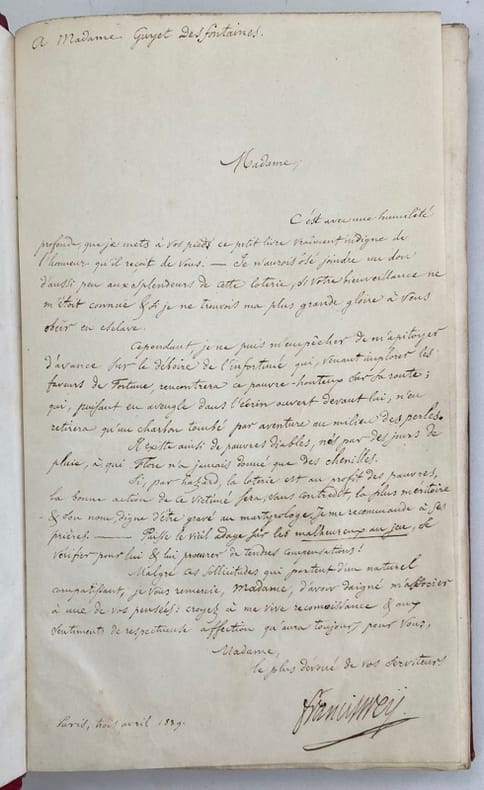 A Madame Guyet Desfontaines.
Madame,
C'est avec une humilité
profonde, que je mets à vos pieds ce petit livre vraiment indigne de
l'honneur qu'il reçoit de vous. — Je n'aurois osé joindre un don
d'aussi peu aux splendeurs de cette loterie, si votre bienveillance ne
m'étoit connue & si je ne trouvois ma plus grande gloire à vous
obéir en esclave.
Cependant, je ne puis m'empêcher de m'apitoyer
d'avance sur le déboire de l'infortuné qui, venant implorer les
faveurs de Fortune, rencontrera ce pauvre-honteux sur sa route;
qui, puisant en aveugle dans l'écrin ouvert devant lui, n'en
retirera qu'un charbon tombé par aventure au milieu des perles.
Il existe ainsi de pauvres diables, nés par des jours de
pluie, à qui Flore n'a jamais donné que des chenilles.
Si, par hazard, la loterie est au profit des pauvres,
la bonne action de la victime sera, sans contredit, la plus méritoire
& son nom digne d'être gravé au martyrologe, je me recommande à ses
prières. — Puisse le vieil adage sur les malheureux au jeu, se
vérifier pour lui & lui procurer de tendres compensations!
Malgré ces sollicitudes qui partent d'un naturel
compatissant, je vous remercie, Madame, d'avoir daigné m'associer
à une de vos pensées: croyez à me vive reconnoissance & aux
sentiments de respectueuse affection qu'aura toujours pour vous,
Madame,
le plus dévoué de vos serviteurs
Francis Wey.
Paris, trois avril 1839.